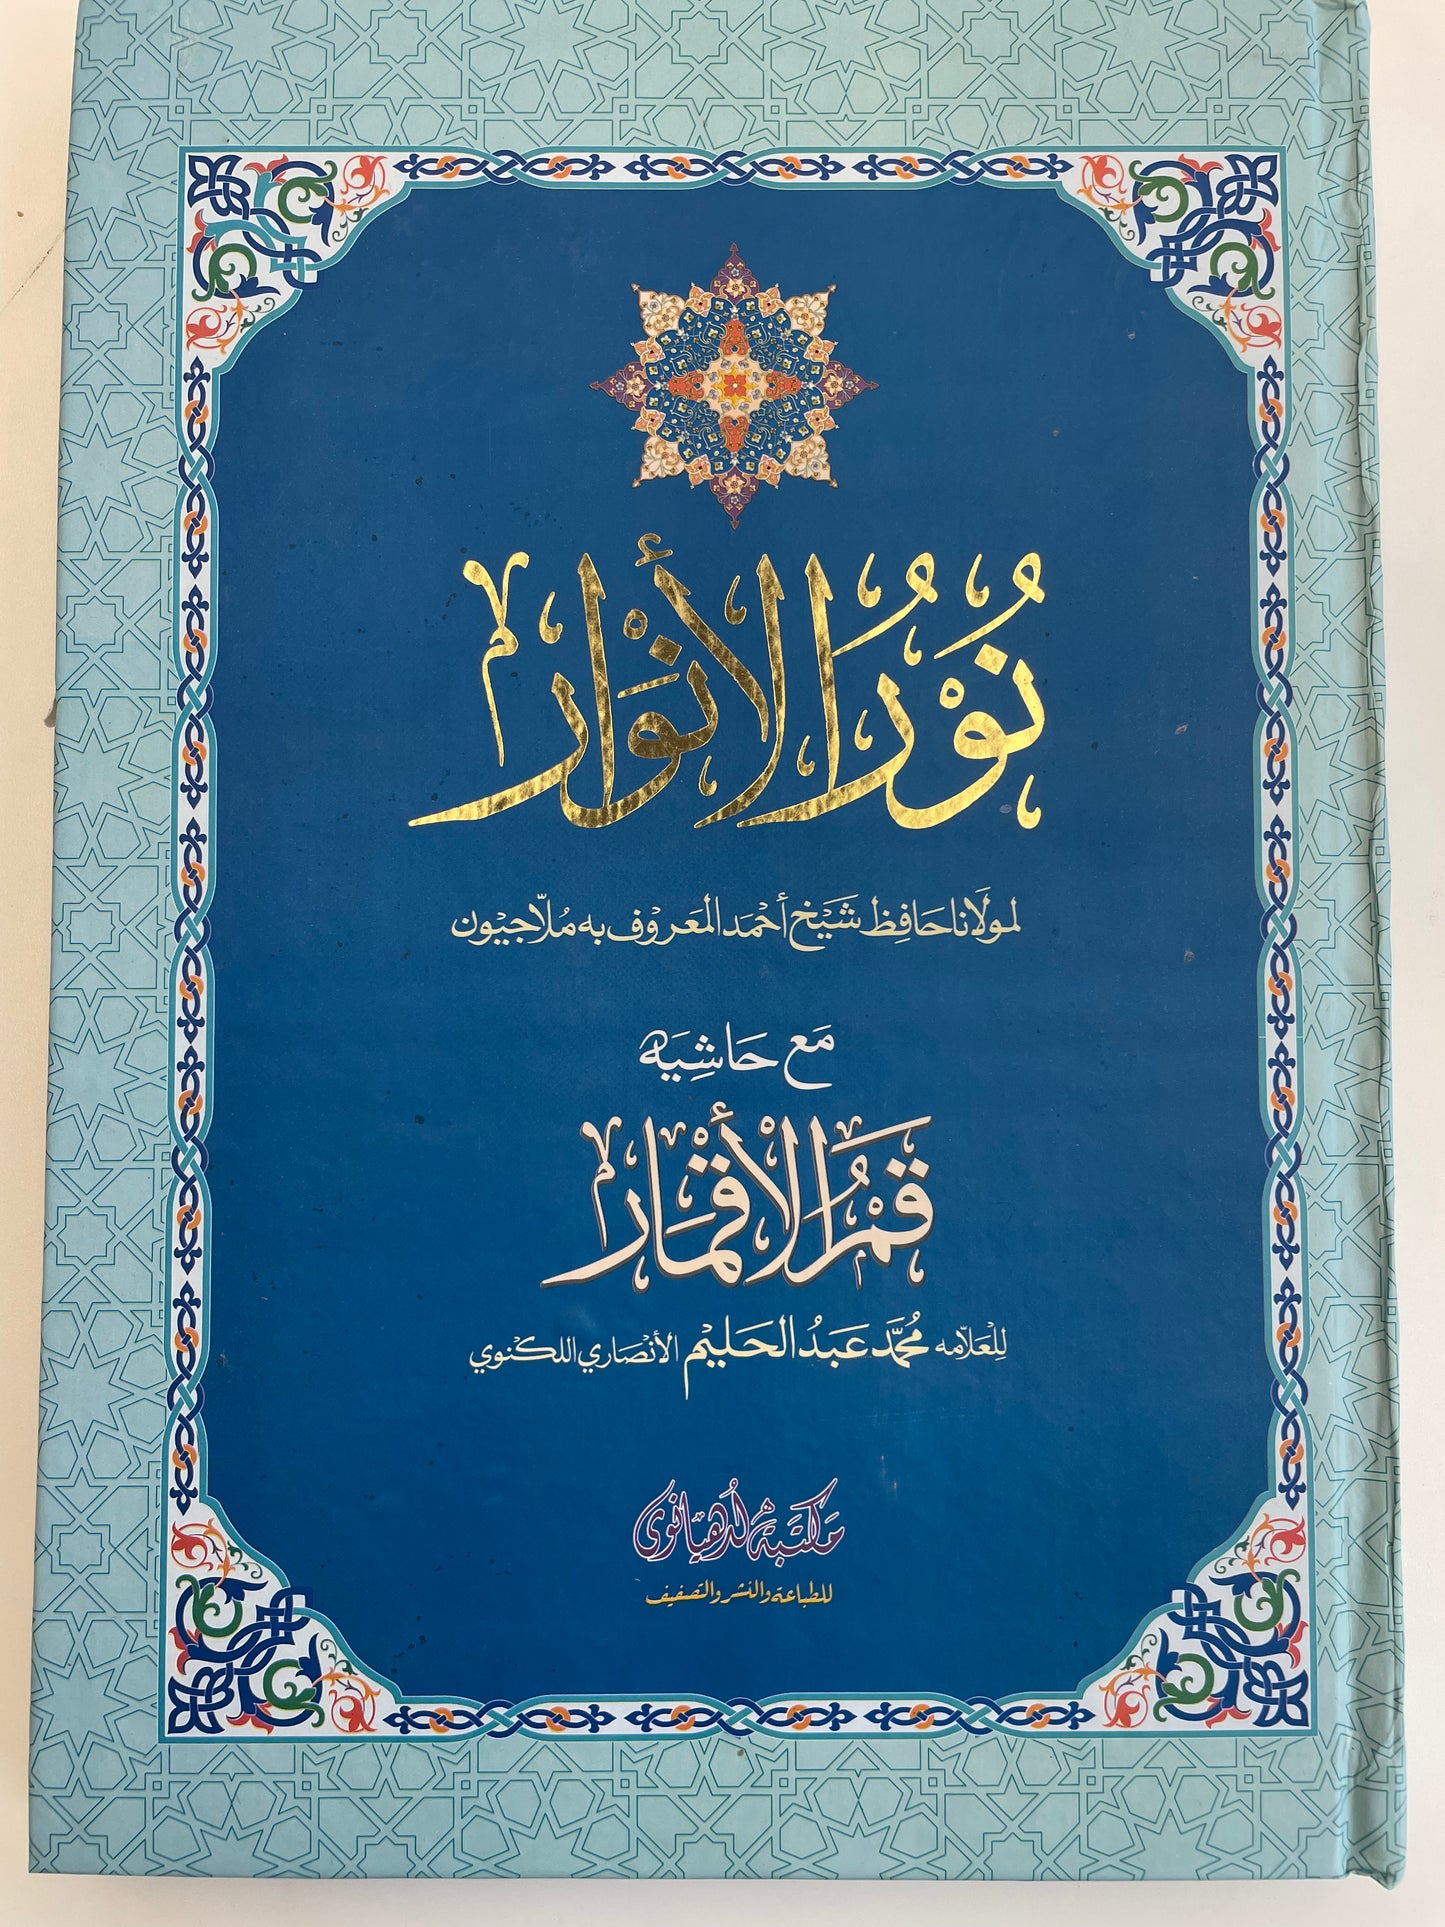 نُوْرُ الْأَنْوَار
لمولانا حافظ شيخ أحمد المعروف به ملاّجيون
مع حاشيه
قمر الأقمار
للعلاّمه محمّد عبد الحليم الأنصاري اللكنوي
مكتبة لدهيانوى
للطباعة والنشر والتصفيف